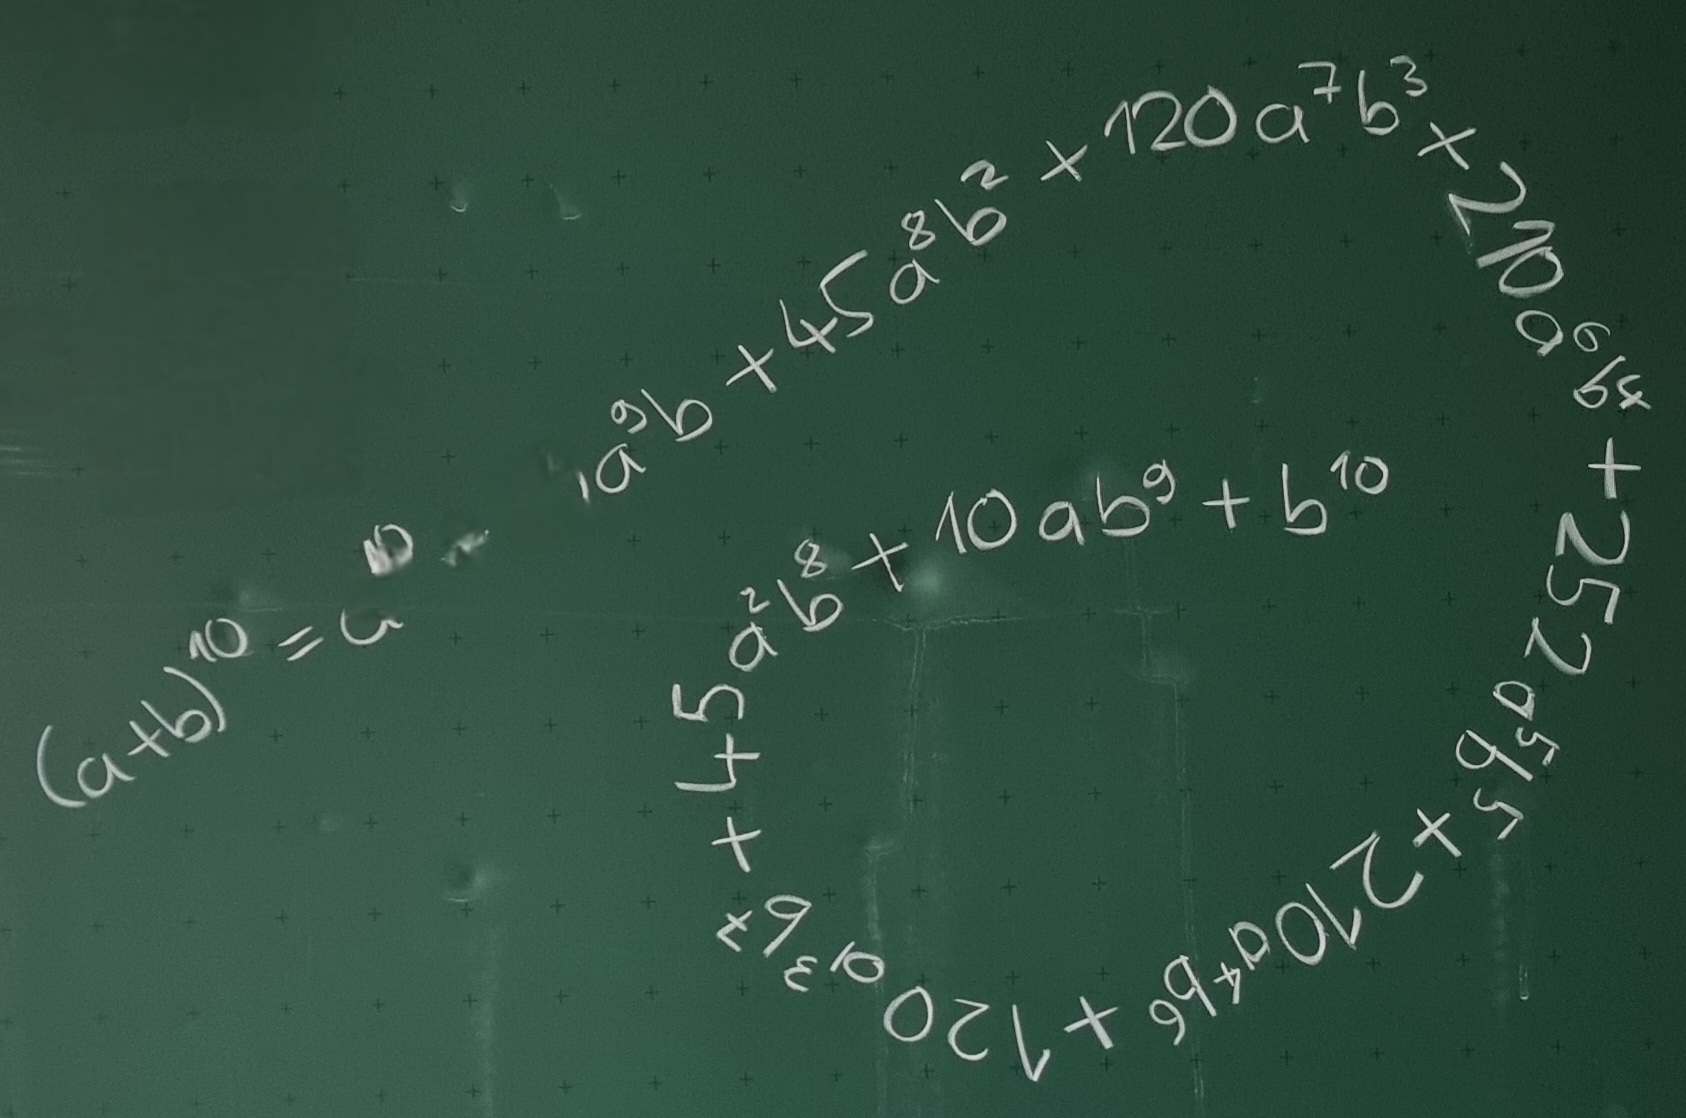 (a+b)¹⁰ = a¹⁰ a⁹b + 45a⁸b² + 120a⁷b³ + 210a⁶b⁴ + 252a⁵b⁵ + 210a⁴b⁶ + 120a³b⁷ + 45a²b⁸ + 10ab⁹ + b¹⁰